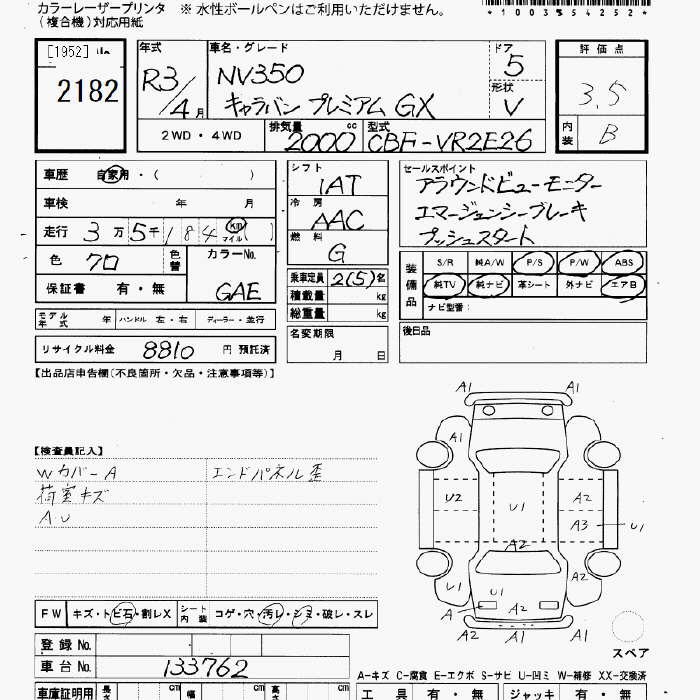 カラーレーザープリンタ ※ 水性ボールペンはご利用いただけません。
(複合機)対応用紙
*1003554252
[1952]
2182
年式 R3/4月
車名・グレード NV350
キャラバン プレミアム GX
ドア 5
形状 V
評価点 3.5
内装 B
2WD・4WD 排気量 2000 cc 型式 CBF-VR2E26
車歴 自家用・( )
車検 年 月
走行 3万5千184 km マイル ( )
色 クロ 色替 カラーNo. GAE
保証書 有・無
モデル年式 年 ハンドル 左・右 ディーラー・並行
リサイクル料金 8810 円 預託済
シフト IAT
冷房 AAC
燃料 G
乗車定員 2(5)名
積載量 kg
総重量 kg
名変期限 月 日
セールスポイント
アラウンドビューモニター
エマージェンシーブレーキ
プッシュスタート
装備品 S/R 純A/W P/S P/W ABS
純TV 純ナビ 革シート 外ナビ エアB
ナビ型番:
後日品
【出品店申告欄(不良箇所・欠品・注意事項等)】
【検査員記入】
Wカバー A エンドパネル歪
荷室キズ
A U
A1
A1 A1
U2 U1 A2
A3 U1
A2
U1 U1 A2
A A2
A1
スペア
FW キズ・トビ石・割レX シート内装 コゲ・穴・汚レ・シミ・破レ・スレ
登録No.
車台No. 133762
A-キズ C-腐食 E-エクボ S-サビ U-凹ミ W-補修 XX-交換済
車庫証明用 長さ cm 幅 cm 高さ cm
工具 有・無 ジャッキ 有・無